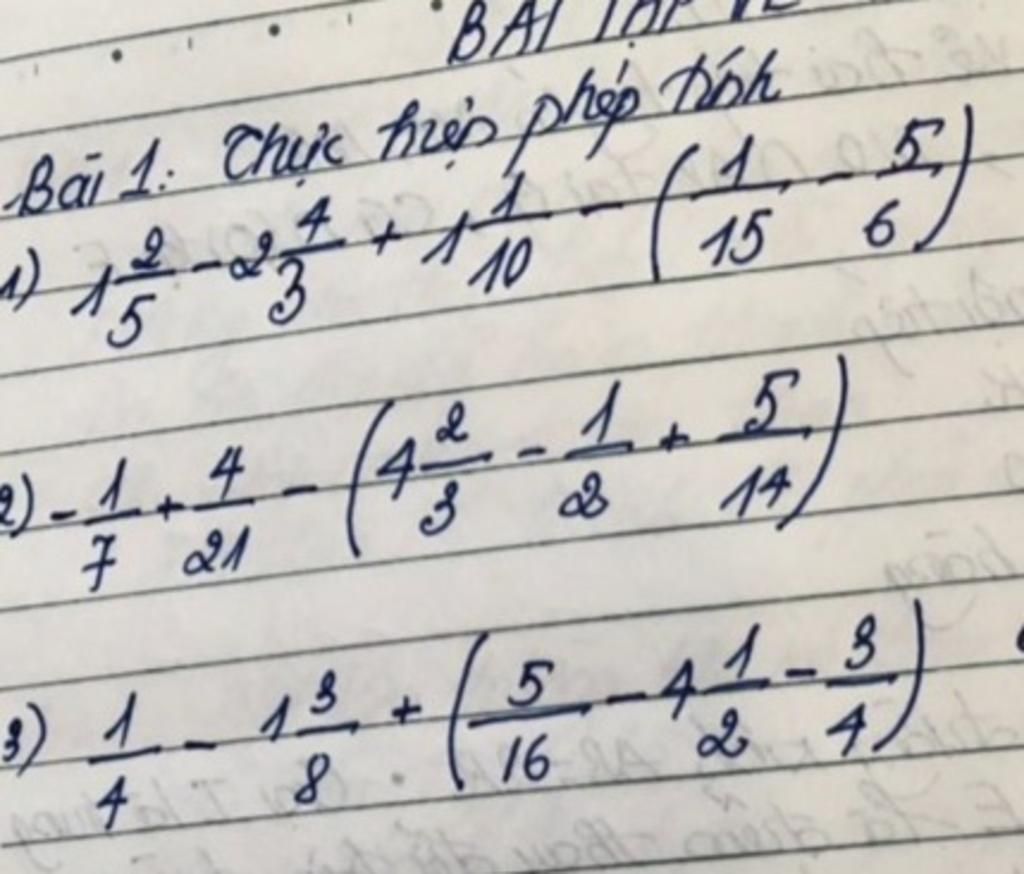 BÀI TẬP VỀ
Bài 1: Thực hiện phép tính
1) 1 2/5 - 2 4/3 + 1 1/10 - (1/15 - 5/6)
2) - 1/7 + 4/21 - (4 2/3 - 1/2 + 5/14)
3) 1/4 - 1 3/8 + (5/16 - 4 1/2 - 3/4)